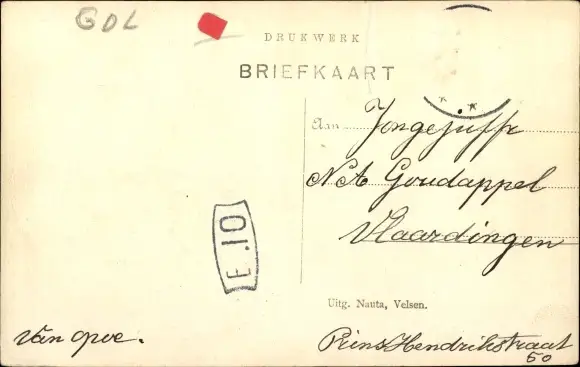 GDL
DRUKWERK
BRIEFKAART
Aan Jongejuffr
N.A. Goudappel
Vlaardingen
E.10
Uitg. Nauta, Velsen.
van opoe.
Prins Hendrikstraat
50